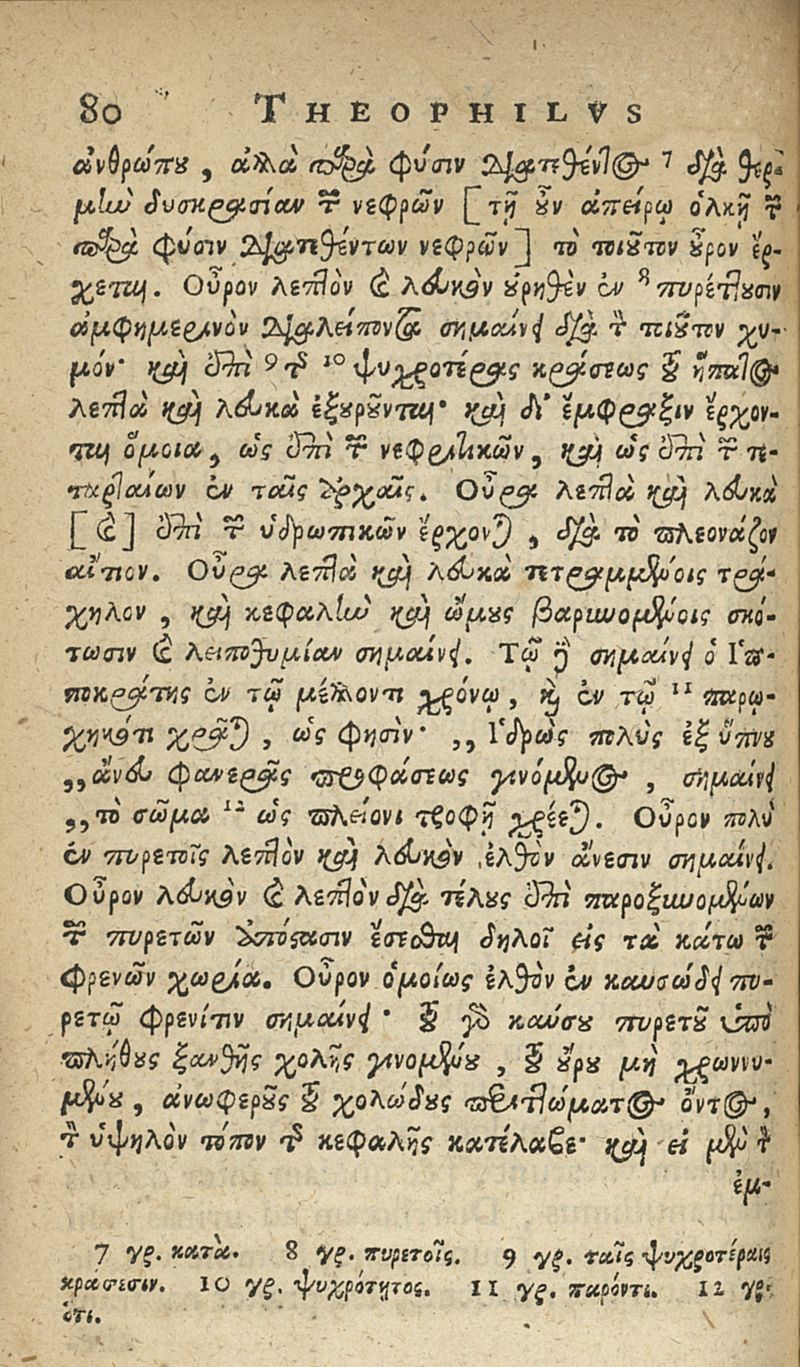 80 THEOPHILVS
ἀνθρώπου, ἀλλὰ παρὰ φύσιν διατιθέντος 7 διὰ θερ-
μὴν δυσκρασίαν τῶν νεφρῶν [τῇ οὖν ἀπείρῳ ὁλκῇ τῶν
παρὰ φύσιν διατιθέντων νεφρῶν] τὸ τοιοῦτον οὖρον ἔρ-
χεται. Οὖρον λεπτὸν καὶ λευκὸν οὐρηθὲν ἐν 8 πυρέττουσιν
ἀμφημερινὸν διαλείποντα σημαίνει διὰ τὸν τοιοῦτον χυ-
μόν· καὶ ἐπὶ 9 τῆς 10 ψυχροτέρας κράσεως τοῦ ἥπατος
λεπτὰ καὶ λευκὰ ἐξουροῦνται· καὶ δι' ἔμφραξιν ἔρχον-
ται ὅμοια, ὡς ἐπὶ τῶν νεφριτικῶν, καὶ ὡς ἐπὶ τῶν τε-
ταρταίων ἐν ταῖς ἀρχαῖς. Οὖρα λεπτὰ καὶ λευκὰ
[καὶ] ἐπὶ τῶν ὑδρωπικῶν ἔρχονται, διὰ τὸ πλεονάζον
αἴτιον. Οὖρα λεπτὰ καὶ λευκὰ τεταραμμένοις τρά-
χηλον, καὶ κεφαλὴν καὶ ὤμους βαρυνομένοις σκό-
τωσιν καὶ λειποθυμίαν σημαίνει. Τῷ δὲ σημαίνει ὁ Ἱπ-
ποκράτης ἐν τῷ μέλλοντι χρόνῳ, καὶ ἐν τῷ 11 παρῳ-
χηκότι χρᾶται, ὡς φησίν· ,,Ἱδρὼς πολὺς ἐξ ὕπνου
,,ἄνευ φανερᾶς προφάσεως γινόμενος, σημαίνει
,,τὸ σῶμα 12 ὡς πλείονι τροφῇ χρέεται. Οὖρον πολὺ
ἐν πυρετοῖς λεπτὸν καὶ λευκὸν ἐλθὸν ἄνεσιν σημαίνει.
Οὖρον λευκὸν καὶ λεπτὸν διὰ τέλους ἐπὶ παροξυνομένων
τῶν πυρετῶν ἀπόστασιν ἔσεσθαι δηλοῖ εἰς τὰ κάτω τῶν
φρενῶν χωρία. Οὖρον ὁμοίως ἐλθὸν ἐν καυσώδει πυ-
ρετῷ φρενίτιν σημαίνει· τοῦ γὰρ καύσου πυρετοῦ ὑπὸ
πλήθους ξανθῆς χολῆς γινομένου, τοῦ οὔρου μὴ χρωννυ-
μένου, ἀνωφεροῦς τοῦ χολώδους περιττώματος ὄντος,
τὸν ὑψηλὸν τόπον τῆς κεφαλῆς κατέλαβε· καὶ εἰ μὲν τὸν
ἐμ-
7 γρ. κατὰ. 8 γρ. πυρετοῖς. 9 γρ. ταῖς ψυχροτέραις
κράσεσιν. 10 γρ. ψυχρότητος. 11 γρ. παρόντι. 12 γρ.
ὅτι.